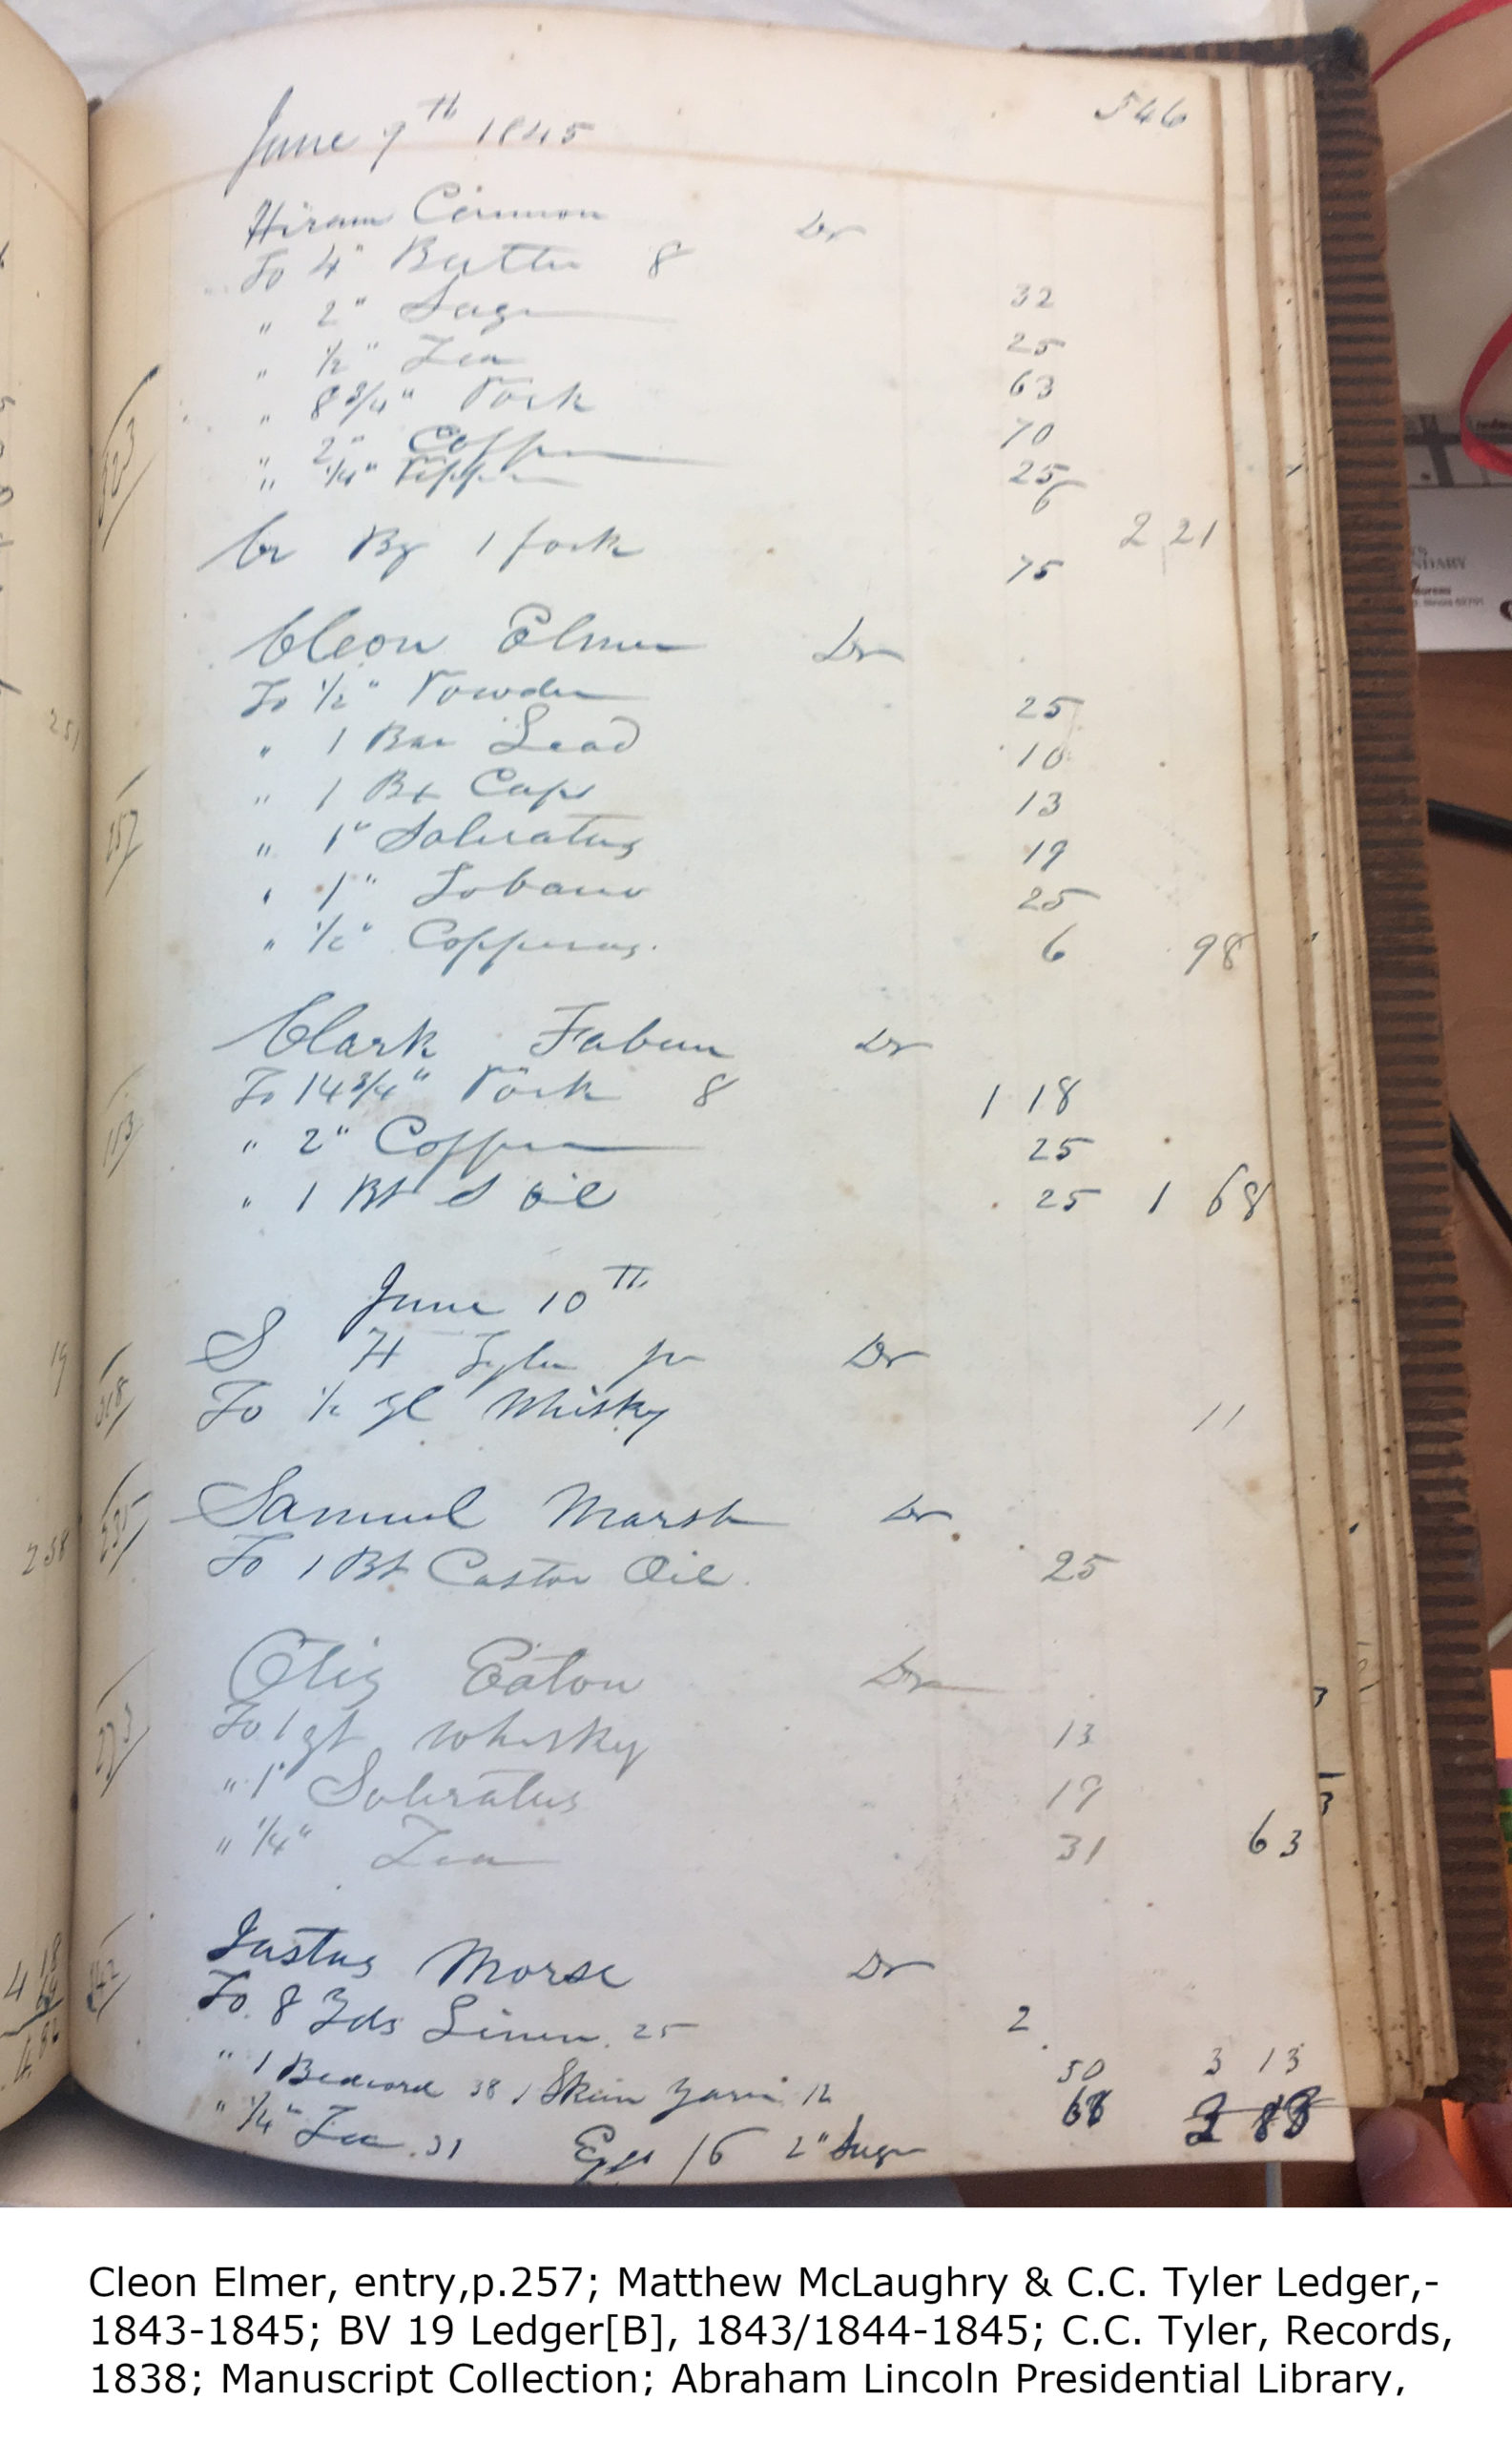 June 9th 1845
546
Hiram Cannon Dr
To 4" Butter 8 32
" 2" Sugar 25
" 1/2" Tea 63
" 8 3/4" Pork 70
" 2" Coffee 25
" 1/4" Pepper 6 2 21
Cr By 1 fork 75
Cleon Elmer Dr
257
To 1/2" Powder 25
" 1 Bar Lead 10
" 1 Bx Caps 13
" 1" Saleratus 19
" 1" Tobacco 25
" 1/2" Copperas. 6 98
Clark Fabun Dr
153
To 14 3/4" Pork 8 1 18
" 2" Coffee 25
" 1 Bt S Oil 25 1 68
June 10th
S H Tyler jr Dr
318
To 1/2 gl Whisky 11
Samuel Marsh Dr
To 1 Bt Castor Oil. 25
Eaton Dr
To 1 qt Whisky 13
" 1" Saleratus 19
" 1/4" Tea 31 63
Justus Morse Dr
To 8 Yds Linen. 25 2
" 1 Bedcord 38 1 Skein Yarn 12 50 3 13
" 1/4" Tea. 31 Eggs 16 2" Sugar 68
Cleon Elmer, entry,p.257; Matthew McLaughry & C.C. Tyler Ledger,-
1843-1845; BV 19 Ledger[B], 1843/1844-1845; C.C. Tyler, Records,
1838; Manuscript Collection; Abraham Lincoln Presidential Library,